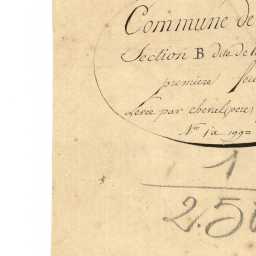 Commune de
Section B dite de l
première feu
Levée par cheval(père)
Nos 1 à 1992
1
2.50